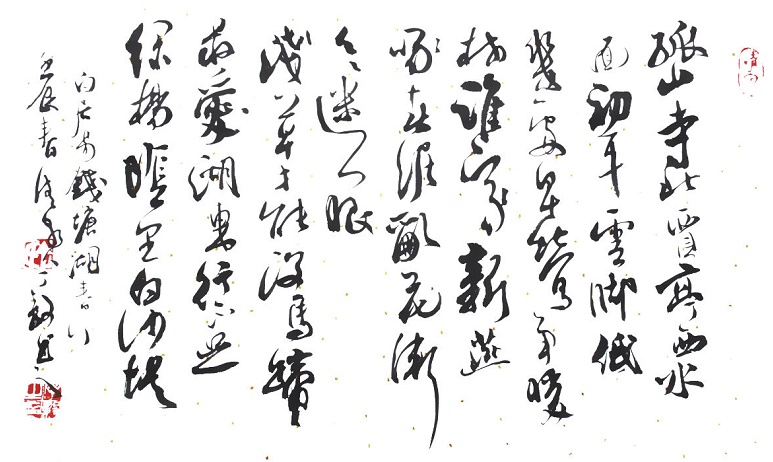 孤山寺北賈亭西水
面初平雲脚低
幾處早鶯爭暖
樹誰家新燕
啄春泥亂花漸
欲迷人眼
淺草才能沒馬蹄
最愛湖東行不足
綠楊陰里白沙堤
白居易錢塘湖春行
壬辰春